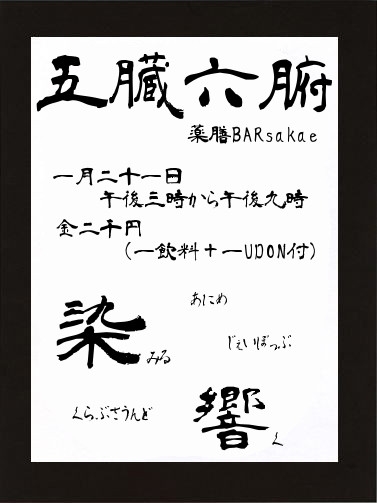 五臓六腑
薬膳BARsakae
一月二十一日
午後三時から午後九時
金二千円
(一飲料十一UDON付)
あにめ
染みる
じぇいぽっぷ
くらぶさうんど
響く